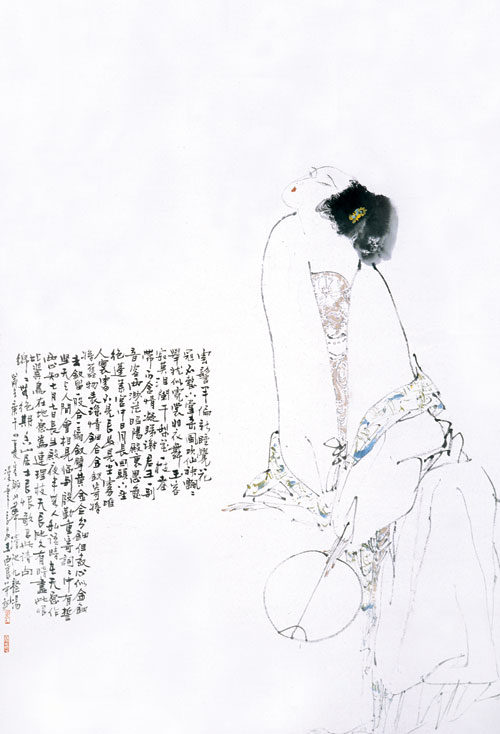 雲鬢半偏新睡覺花
冠不整下堂來風吹仙袂飄飄
舉猶似霓裳羽衣舞玉容
寂寞淚闌干梨花一枝春
帶雨含情凝睇謝君王一別
音容兩渺茫昭陽殿裏恩愛
絕蓬萊宮中日月長回頭下望
人寰處不見長安見塵霧唯
將舊物表深情鈿合金釵寄將
去釵留一股合一扇釵擘黃金合分鈿但教心似金鈿
堅天上人間會相見臨別殷勤重寄詞詞中有誓
兩心知七月七日長生殿夜半無人私語時在天願作
比翼鳥在地願為連理枝天長地久有時盡此恨
綿綿無絕期